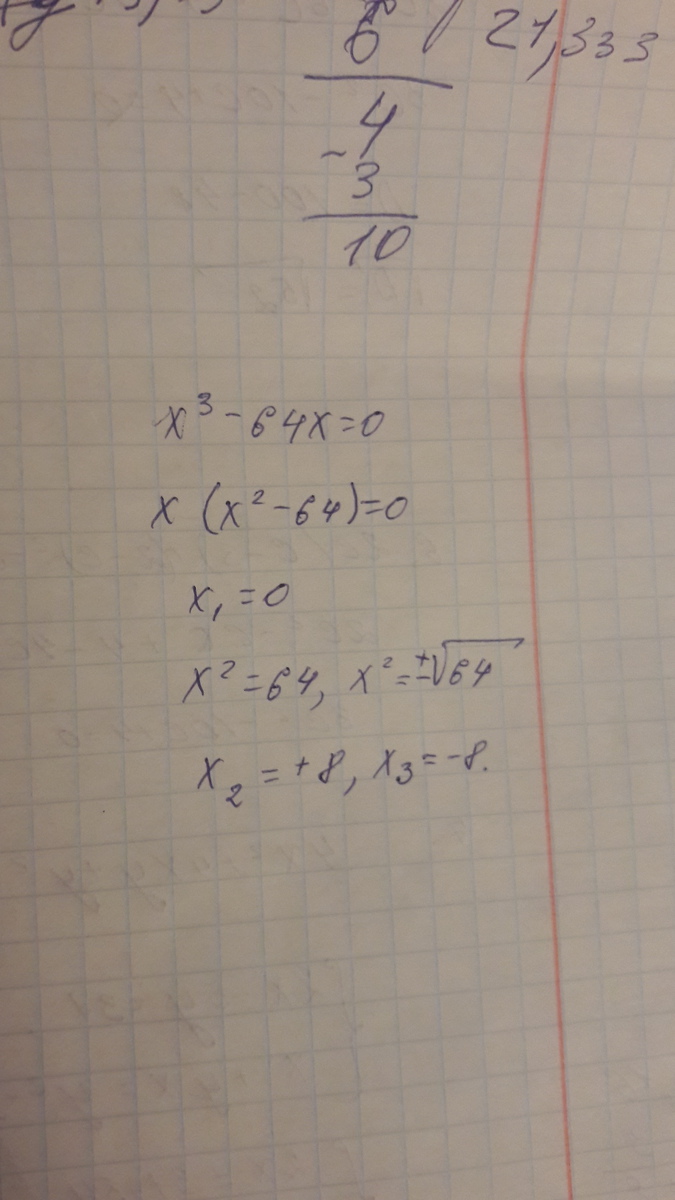 6 21,333
- 4
3
10
x³ - 64x = 0
x (x² - 64) = 0
x₁ = 0
x² = 64, x² = ±√64
x₂ = +8, x₃ = -8.